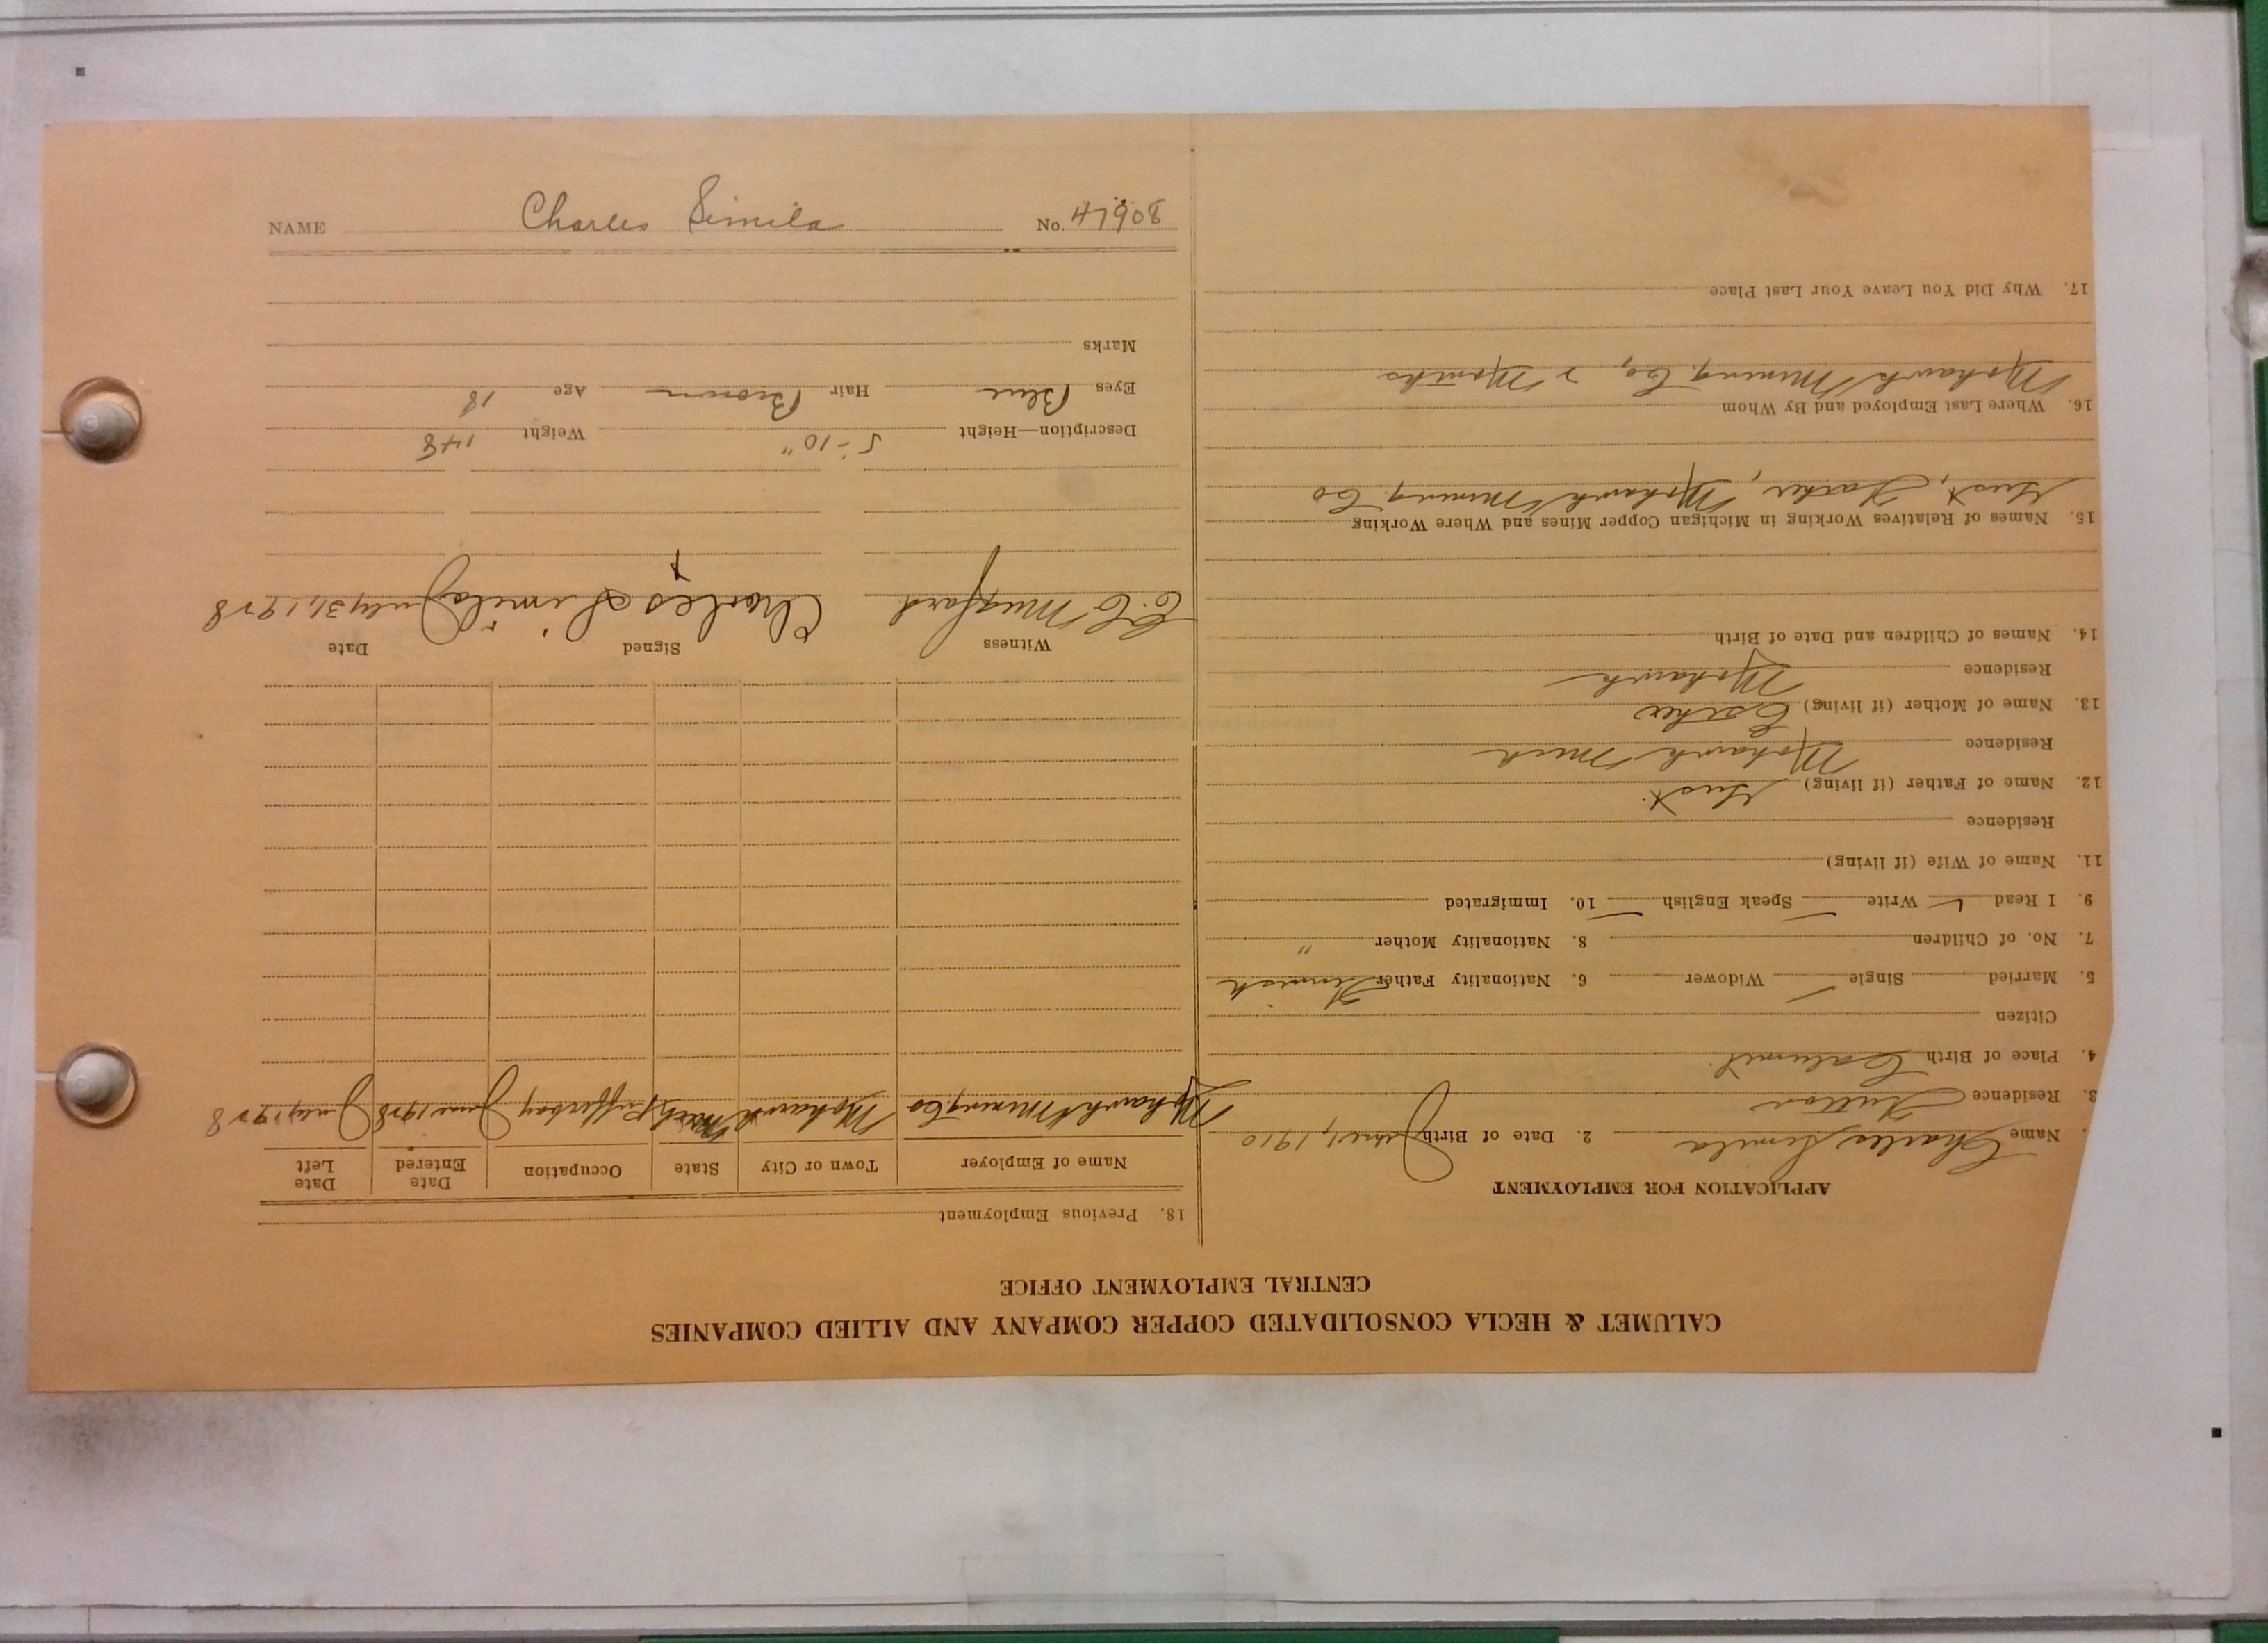 NAME Charles Simila No. 47908
CALUMET & HECLA CONSOLIDATED COPPER COMPANY AND ALLIED COMPANIES
CENTRAL EMPLOYMENT OFFICE
APPLICATION FOR EMPLOYMENT
Name Charles Simila 2. Date of Birth June 1, 1910
3. Residence Fulton
4. Place of Birth Calumet
Citizen
5. Married Single ✓ Widower 6. Nationality Father Finnish
7. No. of Children 8. Nationality Mother "
9. I Read ✓ Write ✓ Speak English ✓ 10. Immigrated
11. Name of Wife (if living)
Residence
12. Name of Father (if living) Gust
Residence Mohawk Mich
13. Name of Mother (if living) Esther
Residence Mohawk
14. Names of Children and Date of Birth
15. Names of Relatives Working in Michigan Copper Mines and Where Working
Gust, Father, Mohawk Mining Co
16. Where Last Employed and By Whom
Mohawk Mining Co, 2 Months
17. Why Did You Leave Your Last Place
18. Previous Employment
Name of Employer Town or City State Occupation Date Entered Date Left
Mohawk Mining Co Mohawk Mich June 1928 July 1928
Witness Signed Date
C.C. Mugford Charles Simila July 31, 1928
Description—Height 5-10" Weight 148
Eyes Blue Hair Brown Age 18
Marks